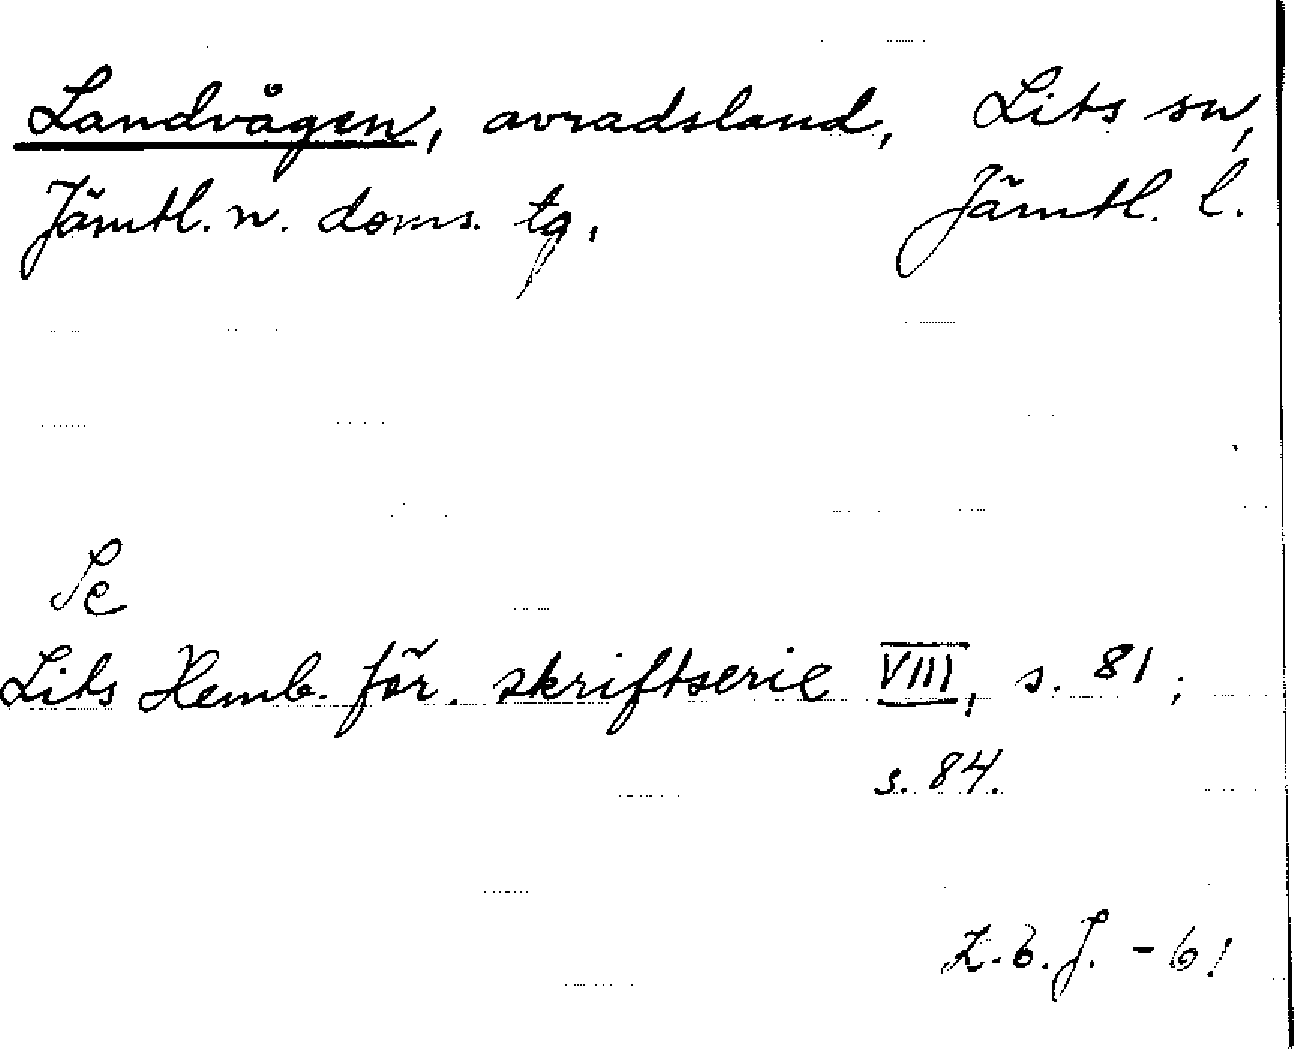 Landvågen, avradsland, Lits sn,
Jämtl. n. doms. tg, Jämtl. l.
Se
Lits Hemb. för. skriftserie VIII, s. 81;
s. 84.
Z.B.J. -61